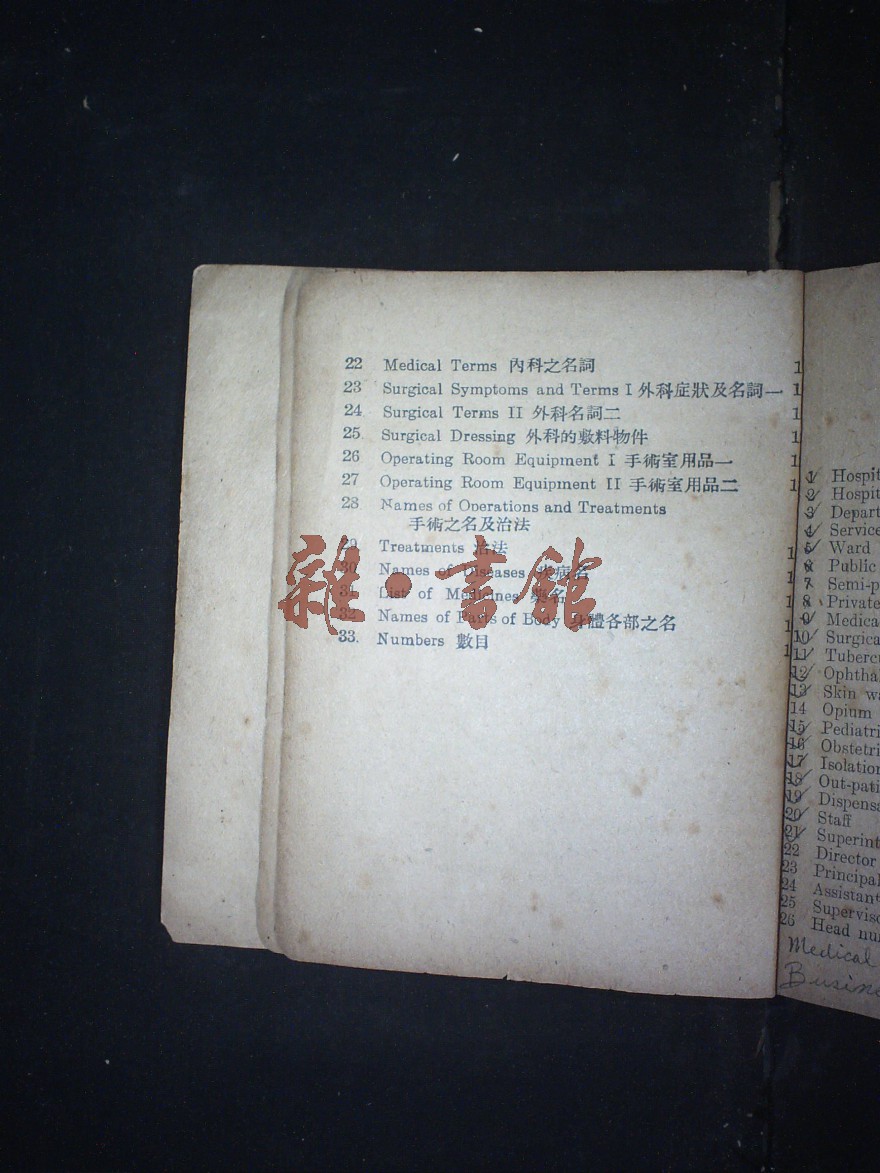 22 Medical Terms 內科之名詞 1
23 Surgical Symptoms and Terms I 外科症狀及名詞一 1
24 Surgical Terms II 外科名詞二 1
25 Surgical Dressing 外科的敷料物件 1
26 Operating Room Equipment I 手術室用品一 1
27 Operating Room Equipment II 手術室用品二 1
28 Names of Operations and Treatments
手術之名及治法
29 Treatments 治法 1
30 Names of Diseases 疾病名 1
31 List of Medicines 藥名 1
32 Names of Parts of Body 身體各部之名 1
33. Numbers 數目 1
雜·書館
1 Hospit
2 Hospit
3 Depart
4 Service
5 Ward
6 Public
7 Semi-p
8 Private
9 Medica
10 Surgica
11 Tubercu
12 Ophtha
13 Skin wa
14 Opium
15 Pediatri
16 Obstetri
17 Isolation
18 Out-pati
19 Dispensa
20 Staff
21 Superint
22 Director
23 Principal
24 Assistant
25 Superviso
26 Head nur
Medical
Busine